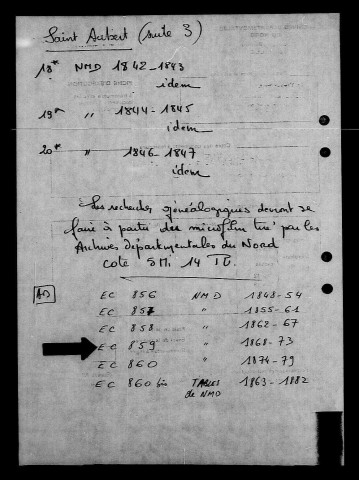 Saint Aubert (suite 3)
18* NMD 1842-1843
idem
19* " 1844-1845
idem
20* " 1846-1847
idem
Les recherches généalogiques devront se
faire à partir du microfilm tiré par les
Archives Départementales du Nord
cote 5Mi 14
AD
EC 856 NMD 1848-54
EC 857 " 1855-61
EC 858 " 1862-67
EC 859 " 1868-73
EC 860 " 1874-79
EC 860 bis TABLES 1863-1882
de NMD